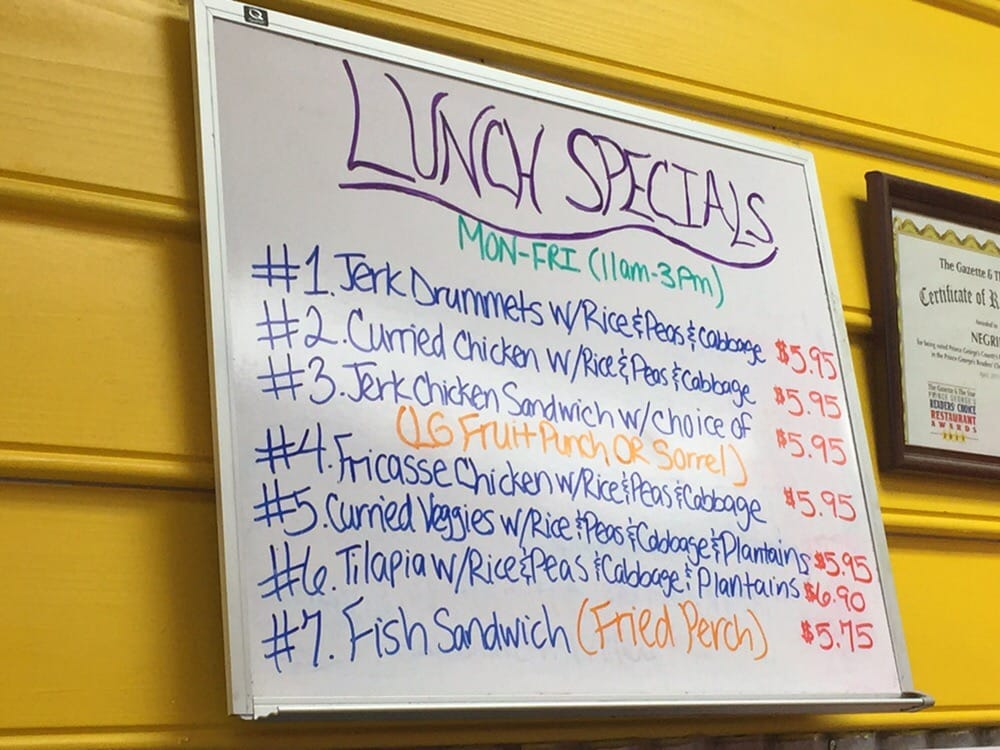 LUNCH SPECIALS
MON-FRI (11am-3Pm)
#1. Jerk Drummets w/Rice & Peas & Cabbage $5.95
#2. Curried Chicken w/Rice & Peas & Cabbage $5.95
#3. Jerk Chicken Sandwich w/choice of $5.95
(LG Fruit Punch OR Sorrel)
#4. Fricasse Chicken w/Rice & Peas & Cabbage $5.95
#5. Curried Veggies w/Rice & Peas & Cabbage & Plantains $5.95
#6. Tilapia w/Rice & Peas & Cabbage & Plantains $6.90
#7. Fish Sandwich (Fried Perch) $5.75
The Gazette &
Certificate of
NEGRI
The Gazette & The Star
PRINCE GEORGE'S
READERS' CHOICE
RESTAURANT
AWARDS